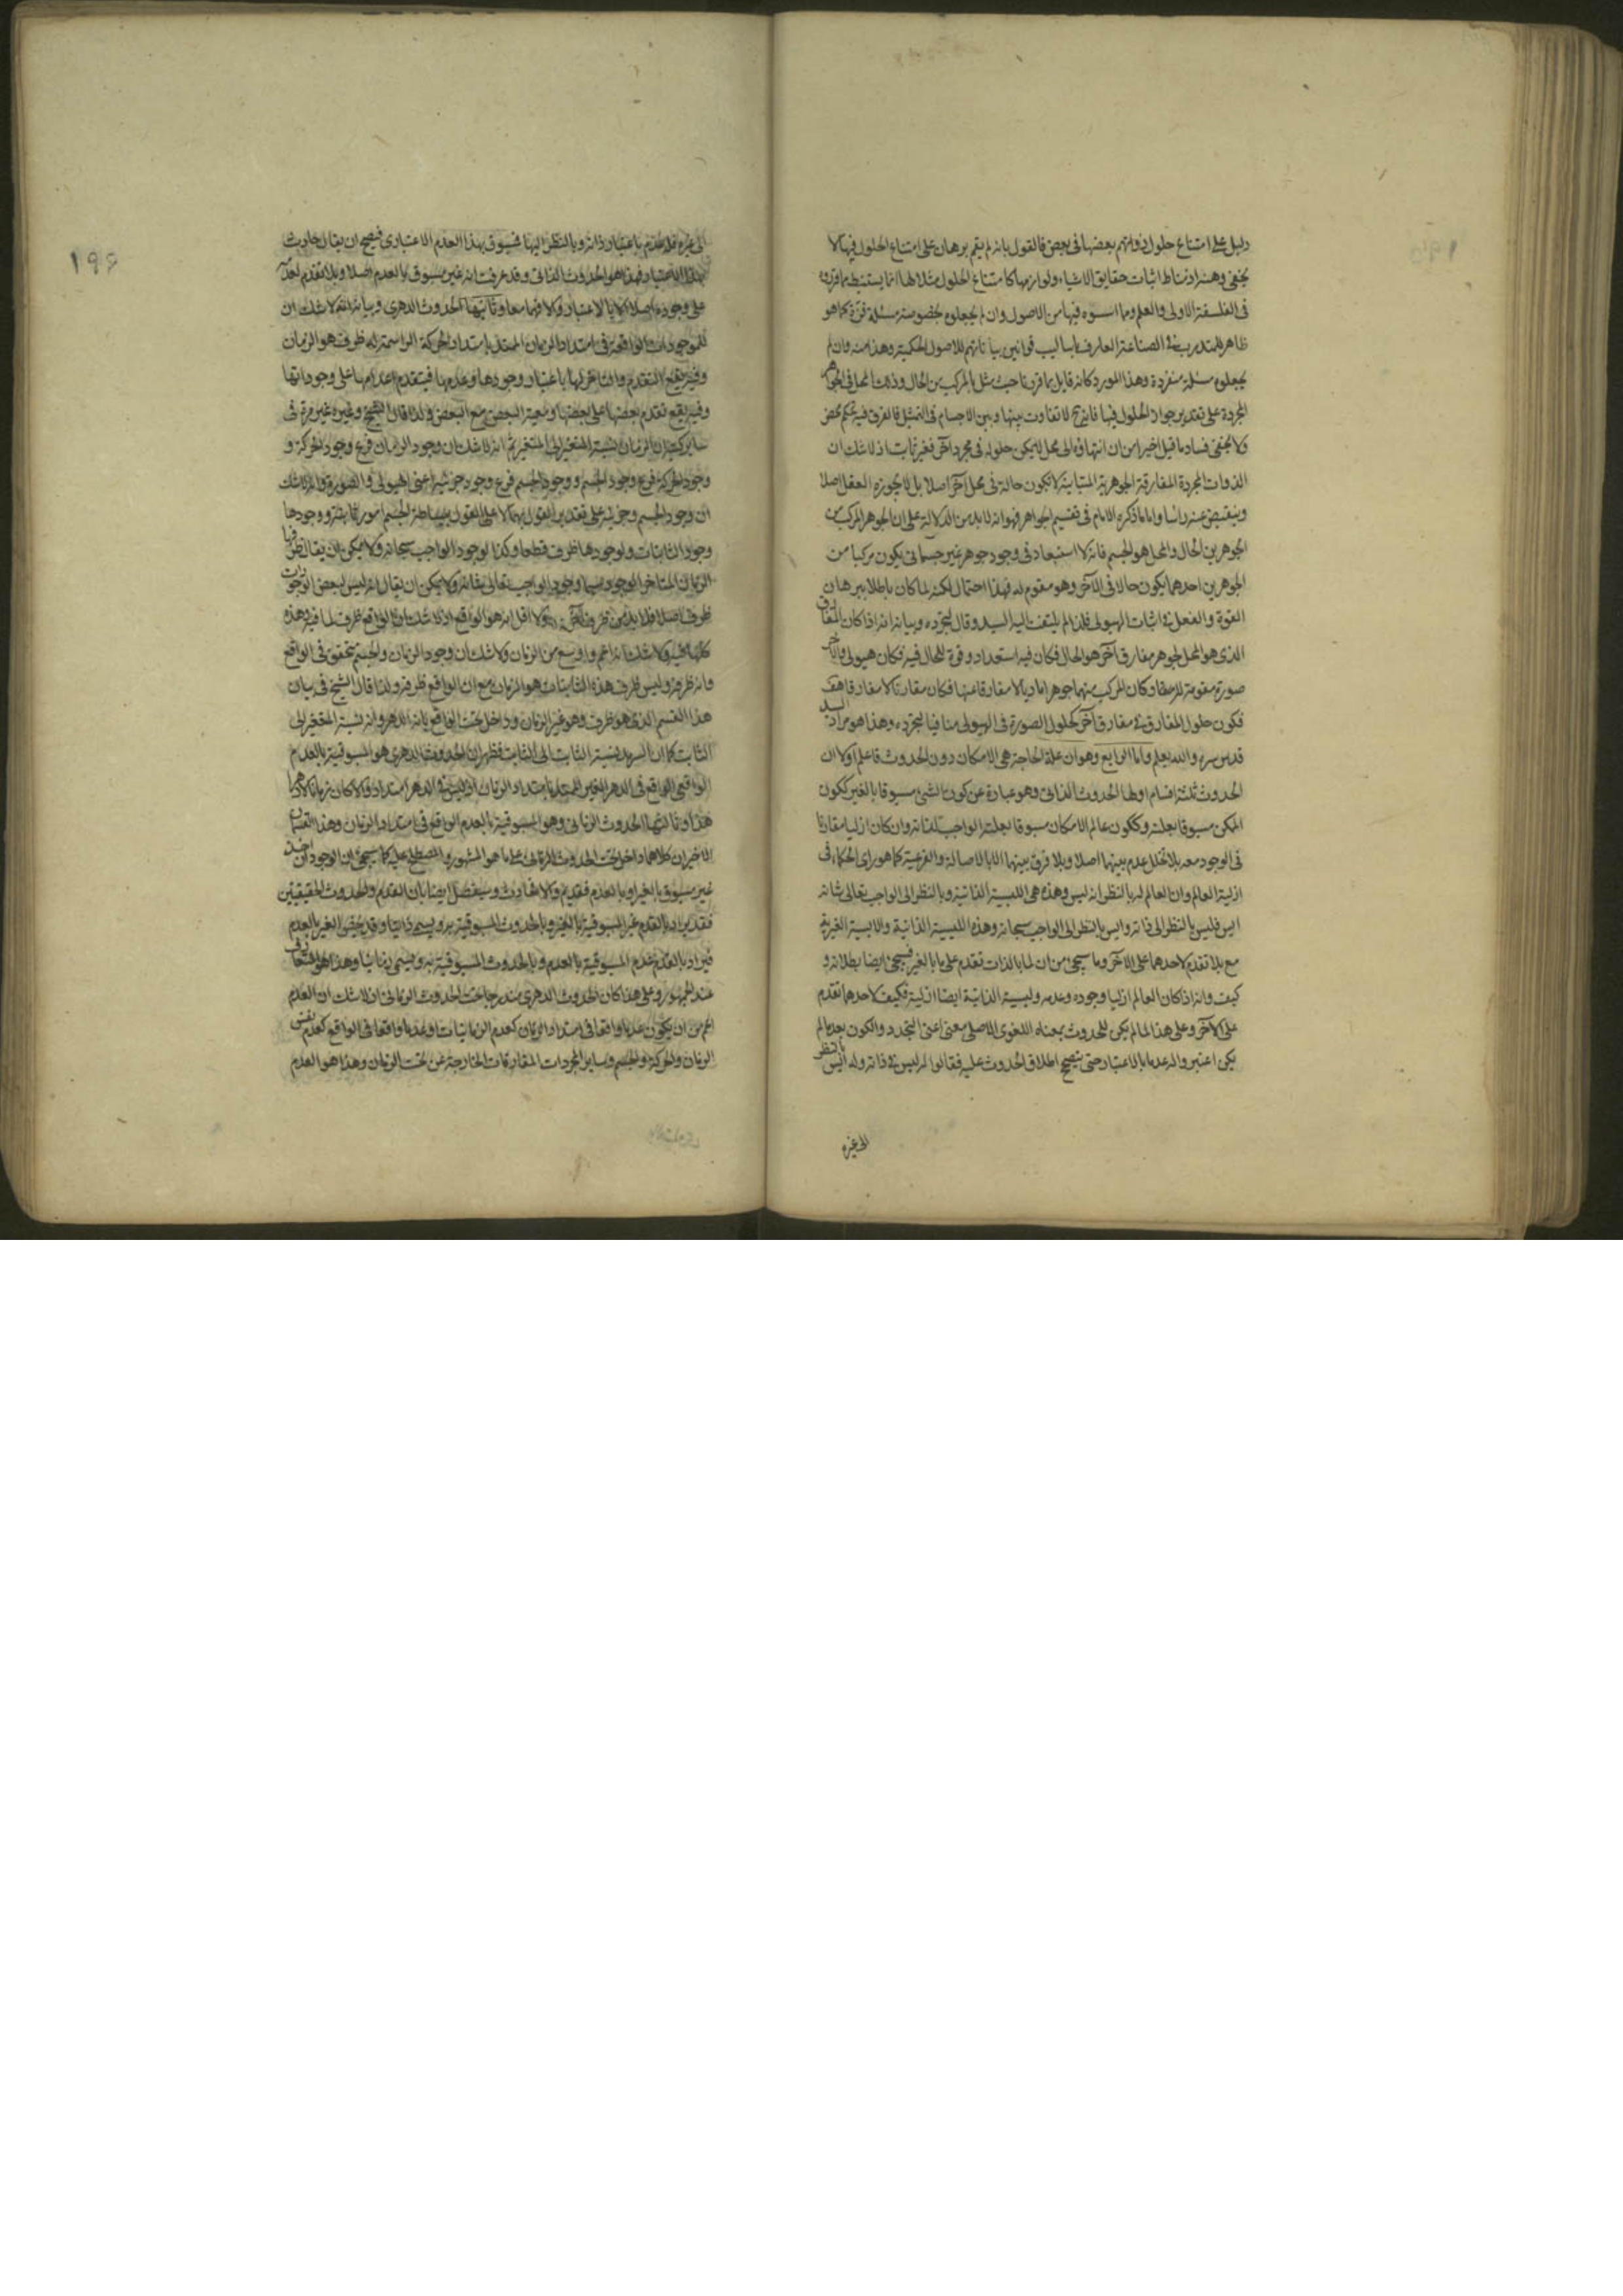 دليل على امتناع حلول ذواتهم بعضها فى بعض فالقول بانه لم يقم برهان على امتناع الحلول فيها كلا
يخفى وهنه اذ مناط اثبات حقايق الاشياء ولوازمها كامتناع الحلول مثلا لها انما يستنبط مما قرروه
فى الفلسفة الاولى والعلم وما اسسوه فيها من الاصول وان لم يجعلوه بخصوصه مسئلة كما هو
ظاهر للمتدرب فى الصناعة العارف باساليب قوانين بياناتهم للاصول الحكمية وهذا منه وان لم
يجعلوه مسئلة منفردة وهذا المورد كانه قابل بما قررنا حيث مثل بالمركب من الحال وذلك المحل فى الجواهر
المجردة على تقدير جواز الحلول فيها فانه لا تفاوت بينها وبين الاجسام فى التمثيل فالفرق فيه تحكم محض
ولا يخفى فساد ما قيل اخيرا من ان انتهاؤه الى محل لا يمكن حلوله فى مجرد آخر فغير ثابت اذ لا شك ان
الذوات المجردة المفارقة الجوهرية المتباينة لا تكون حالة فى محل آخر اصلا بل لا يجوزه العقل اصلا
وينقبض عنه راسا واما ما ذكره الامام فى تقسيم الجواهر فهو انه لا بد من الدلالة على ان الجوهر المركب من
الجوهرين الحال والمحل هو الجسم فانه لا استبعاد فى وجود جوهر غير جسمانى يكون مركبا من
الجوهرين احدهما يكون حالا فى الآخر وهو مقوم له فهذا احتمال لكنه لما كان باطلا ببرهان
القوة والفعل فى اثبات الهيولى فلذا لم يلتفت اليه السيد وقال لتجرده وبيانه انه اذا كان المفارق
الذى هو المحل لجوهر مفارق آخر هو الحال فكان فيه استعداد وقوة للحال فيه فكان هيولى والآخر
صورة مقومة له وكان المركب منهما جوهرا ماديا لا مفارقا عنها فكان مقارنا لا مفارقا هف
فكون حلول المفارق فى مفارق آخر كحلول الصورة فى الهيولى منافيا لتجرده وهذا هو مراد السيد
قدس سره والله يعلم واما الرابع وهو ان علة الحاجة هى الامكان دون الحدوث فاعلم اولا ان
الحدوث ثلثة اقسام اولها الحدوث الذاتى وهو عبارة عن كون الشئ مسبوقا بالغير ككون
الممكن مسبوقا بعلته وككون عالم الامكان مسبوقا بعلته الواجب لذاته وان كان ازليا مقارنا
فى الوجود معه بلا تخلل عدم بينهما اصلا وبلا فرق بينهما الا بالاصالة والفرعية كما هو راى الحكماء فى
ازلية العالم وان العالم له بالنظر انه ليس وهذه هى الليسية الذاتية وبالنظر الى الواجب تعالى شانه
ايس فليس بالنظر الى ذاته وايس بالنظر الى الواجب سبحانه وهذه الليسية الذاتية والايسية الغيرية
مع بلا تقدم لاحدهما على الآخر وما سيجئ من ان لما بالذات تقدم على ما بالغير فسيجئ ايضا بطلانه و
كيف وانه اذا كان العالم ازليا وجوده وعدمه وليسية الذاتية ايضا ازلية فكيف لاحدهما تقدم
على الآخر وعلى هذا لما لم يكن للحدوث بمعناه اللغوى الاصلى معنى اعنى التجدد والكون بعد ما لم
يكن اعتبروا له عدما بالاعتبار حتى يصح اطلاق الحدوث عليه فقالوا له ليس فى ذاته وله ايس بالنظر
الى غيره
١٩٦
الى غيره فله عدم باعتبار ذاته وبالنظر اليها فمسبوق بهذا العدم الاعتبارى فيصح ان يقال حادث
بهذا الاعتبار فهذا هو الحدوث الذاتى وقد عرفت انه غير مسبوق بالعدم اصلا وبلا تقدم لعدمه
على وجوده اصلا الا بالاعتبار وثانيها الحدوث الدهرى وبيانه انه لا شك ان
للموجودات الواقعة فى امتداد الزمان الممتد بامتداد الحركة الراسمة له ظرف هو الزمان
وفيه يقع التقدم والتاخر لها باعتبار وجودها وعدمها فيتقدم اعدامها على وجوداتها
وفيه يقع تقدم بعضها على بعضها ومعية البعض مع البعض ولذا قال الشيخ وغيره غير مرة فى
ساير كتبه ان الزمان نسبة المتغير الى المتغير ثم انه لا شك ان وجود الزمان فرع وجود الحركة و
وجود الحركة فرع وجود الجسم ووجود الجسم فرع وجود جزئيه اعنى الهيولى والصورة ولا شك
ان وجود الجسم وجزئيه على تقدير القول بهما لا على القول ببساطة الجسم امور ثابتة ووجودها
وجود الثابتات ولوجودها ظرف قطعا وكذا لوجود الواجب سبحانه ولا يمكن ان يقال ظرفها
الزمان المتاخر الوجود سيما وجود الواجب تعالى شانه ولا يمكن ان يقال انه ليس لبعض الموجودات
ظرف اصلا فلا بد من ظرف آخر ولا اقل انه هو الواقع اذ لا شك ان الواقع ظرف لما فيه وهذه
كلها فيه ولا شك انه اعم واوسع من الزمان ولا شك ان وجود الزمان والجسم متحقق فى الواقع
وانه ظرفه وليس ظرف هذه الثابتات هو الزمان مع ان الواقع ظرفه ولذا قال الشيخ فى بيان
هذا القسم الذى هو ظرف وهو غير الزمان وداخل تحت الواقع بانه الدهر وانه نسبة المتغير الى
الثابت كما ان السرمد نسبة الثابت الى الثابت فظهر ان الحدوث الدهرى هو المسبوقية بالعدم
الواقعى الواقع فى الدهر الغير الممتد بامتداد الزمان اذ ليس فى الدهر امتداد والا لكان زمانا لا دهرا
هذا وثالثها الحدوث الزمانى وهو المسبوقية بالعدم الواقع فى امتداد الزمان وهذا القسمان
الاخيران كلاهما داخل تحت الحدوث الزمانى على ما هو المشهور والمصطلح عليه كما سيجئ ان الوجود ان اخذ
غير مسبوق بالغير او بالعدم فقديم والا فحادث وسيفصل ايضا بان القدم والحدوث الحقيقيين
فقد يراد بالقدم غير المسبوقية بالغير وبالحدوث المسبوقية به ويسمى ذاتيا وقد يخص الغير بالعدم
فيراد بالقدم عدم المسبوقية بالعدم وبالحدوث المسبوقية به ويسمى زمانيا وهذا هو المتعارف
عند الجمهور وعلى هذا كان الحدوث الدهرى مندرجا تحت الحدوث الزمانى اذ لا شك ان العدم
اعم من ان يكون عدما واقعا فى امتداد الزمان كعدم الزمانيات او عدما واقعا فى الواقع كعدم نفس
الزمان والحركة والجسم وساير المجردات المفارقات الخارجة عن تحت الزمان وهذا هو العدم